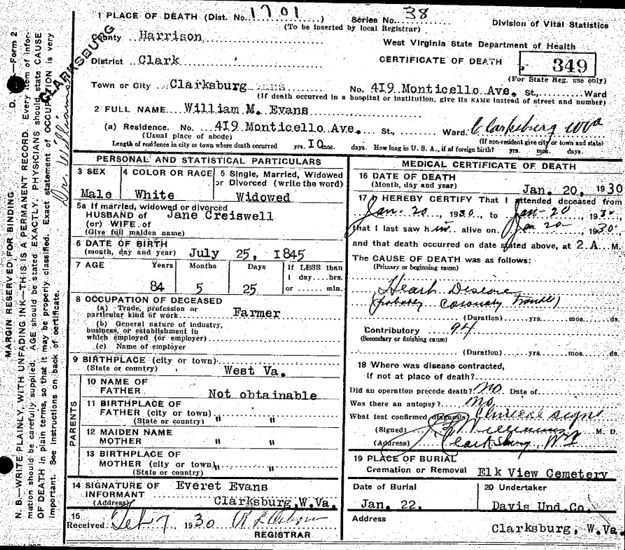 1 PLACE OF DEATH (Dist. No. 1701 Series No. 38
(To be inserted by local Registrar)
Division of Vital Statistics
County Harrison
West Virginia State Department of Health
District Clark
CERTIFICATE OF DEATH 349
(For State Reg. use only)
Town or City Clarksburg No. 419 Monticello Ave. St., Ward
(If death occurred in a hospital or institution, give its NAME instead of street and number)
2 FULL NAME William M. Evans
(a) Residence. No. 419 Monticello Ave. St., Ward. Clarksburg WVa
(Usual place of abode) (If non-resident give city or town and state)
Length of residence in city or town where death occurred yrs. 10 mos. days. How long in U. S., if of foreign birth? yrs. mos. days.
PERSONAL AND STATISTICAL PARTICULARS
3 SEX Male
4 COLOR OR RACE White
5 Single, Married, Widowed or Divorced (write the word) Widowed
5a If married, widowed or divorced
HUSBAND of Jane Creiswell
(or) WIFE of
(Give full maiden name)
6 DATE OF BIRTH
(month, day and year) July 25, 1845
7 AGE Years Months Days If LESS than
1 day....hrs.
84 5 25 or.... min.
8 OCCUPATION OF DECEASED
(a) Trade, profession or
particular kind of work Farmer
(b) General nature of industry,
business, or establishment in
which employed (or employer)
(c) Name of employer
9 BIRTHPLACE (city or town)
(State or country) West Va.
PARENTS
10 NAME OF
FATHER Not obtainable
11 BIRTHPLACE OF
FATHER (city or town) " "
(State or country)
12 MAIDEN NAME
MOTHER " "
13 BIRTHPLACE OF
MOTHER (city or town) " "
(State or country)
14 SIGNATURE OF
INFORMANT Everet Evans
(Address) Clarksburg, W. Va.
15
Received Feb 7 1930
REGISTRAR
MEDICAL CERTIFICATE OF DEATH
16 DATE OF DEATH
(Month, day and year) Jan. 20, 1930
17 I HEREBY CERTIFY That I attended deceased from
Jan-20 1930 to Jan-20 1930
that I last saw him alive on Jan 20 1930
and that death occurred on date stated above, at 2 A. M.
The CAUSE OF DEATH was as follows:
(Primary or beginning cause)
Heart Disease
(probably Coronary
(Duration) yrs. mos. ds.
Contributory 94
(Secondary or finishing cause)
(Duration) yrs. mos. ds.
18 Where was disease contracted,
if not at place of death?
Did an operation precede death? No Date of
Was there an autopsy? No
What test confirmed diagnosis Clinical signs
(Signed) M. D.
(Address) Clarksburg, W Va
19 PLACE OF BURIAL
Cremation or Removal Elk View Cemetery
Date of Burial
Jan. 22.
20 Undertaker
Davis Und. Co.
Address Clarksburg, W. Va.
MARGIN RESERVED FOR BINDING
N. B.—WRITE PLAINLY, WITH UNFADING INK—THIS IS A PERMANENT RECORD. Every item of infor-
mation should be carefully supplied. AGE should be stated EXACTLY. PHYSICIANS should state CAUSE
OF DEATH in plain terms, so that it may be properly classified. Exact statement of OCCUPATION is very
important. See instructions on back of certificate.
Form 2
CLARKSBURG
Dr. Williams